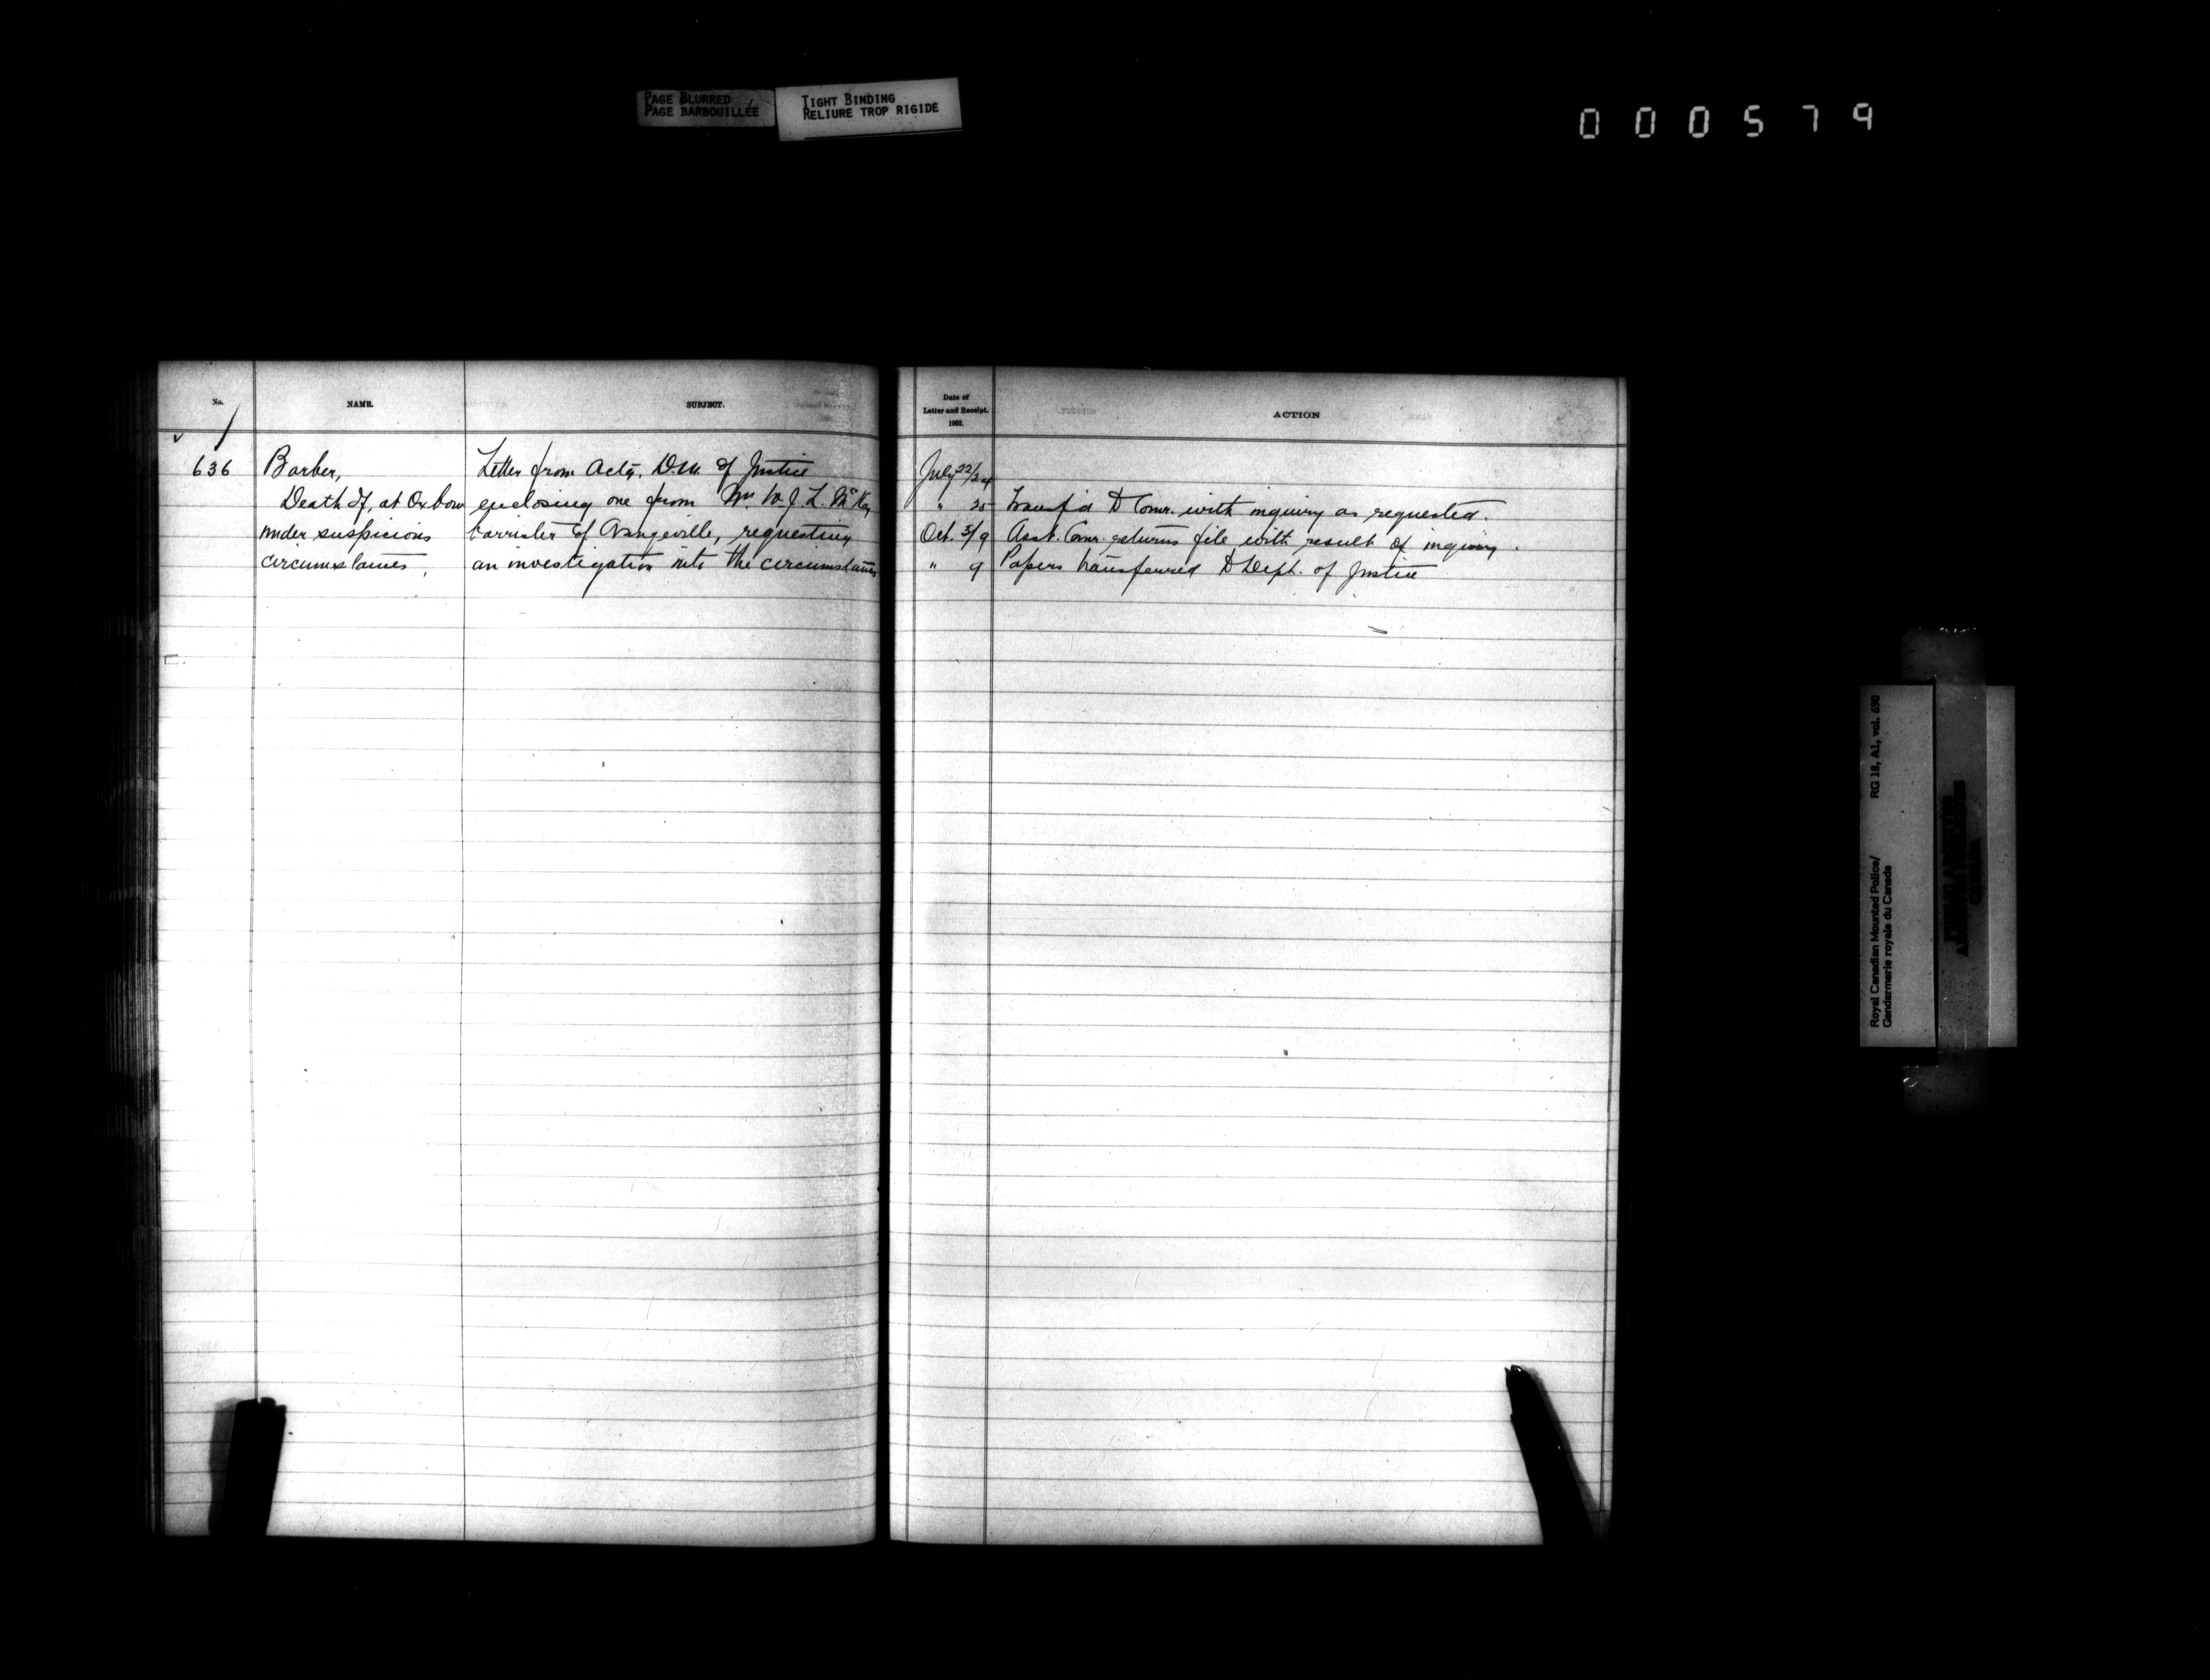 PAGE BLURRED
PAGE BARBOUILLÉE
TIGHT BINDING
RELIURE TROP RIGIDE
000579
No.
NAME.
SUBJECT.
636
Barber,
Death of, at Oxbow
under suspicious
circumstances.
Letter from Actg. D.M. of Justice
enclosing one from Mr. W. J. L. McKay
barrister of Orangeville, requesting
an investigation into the circumstances
Date of
Letter and Receipt.
1903.
ACTION
July 22/24
" 25 Transf'd to Comr. with inquiry as requested.
Oct. 3/9 Asst. Comr. returns file with result of inquiry.
" 9 Papers transferred to Dept. of Justice
Royal Canadian Mounted Police/ RG 18, A1, vol. 690
Gendarmerie royale du Canada